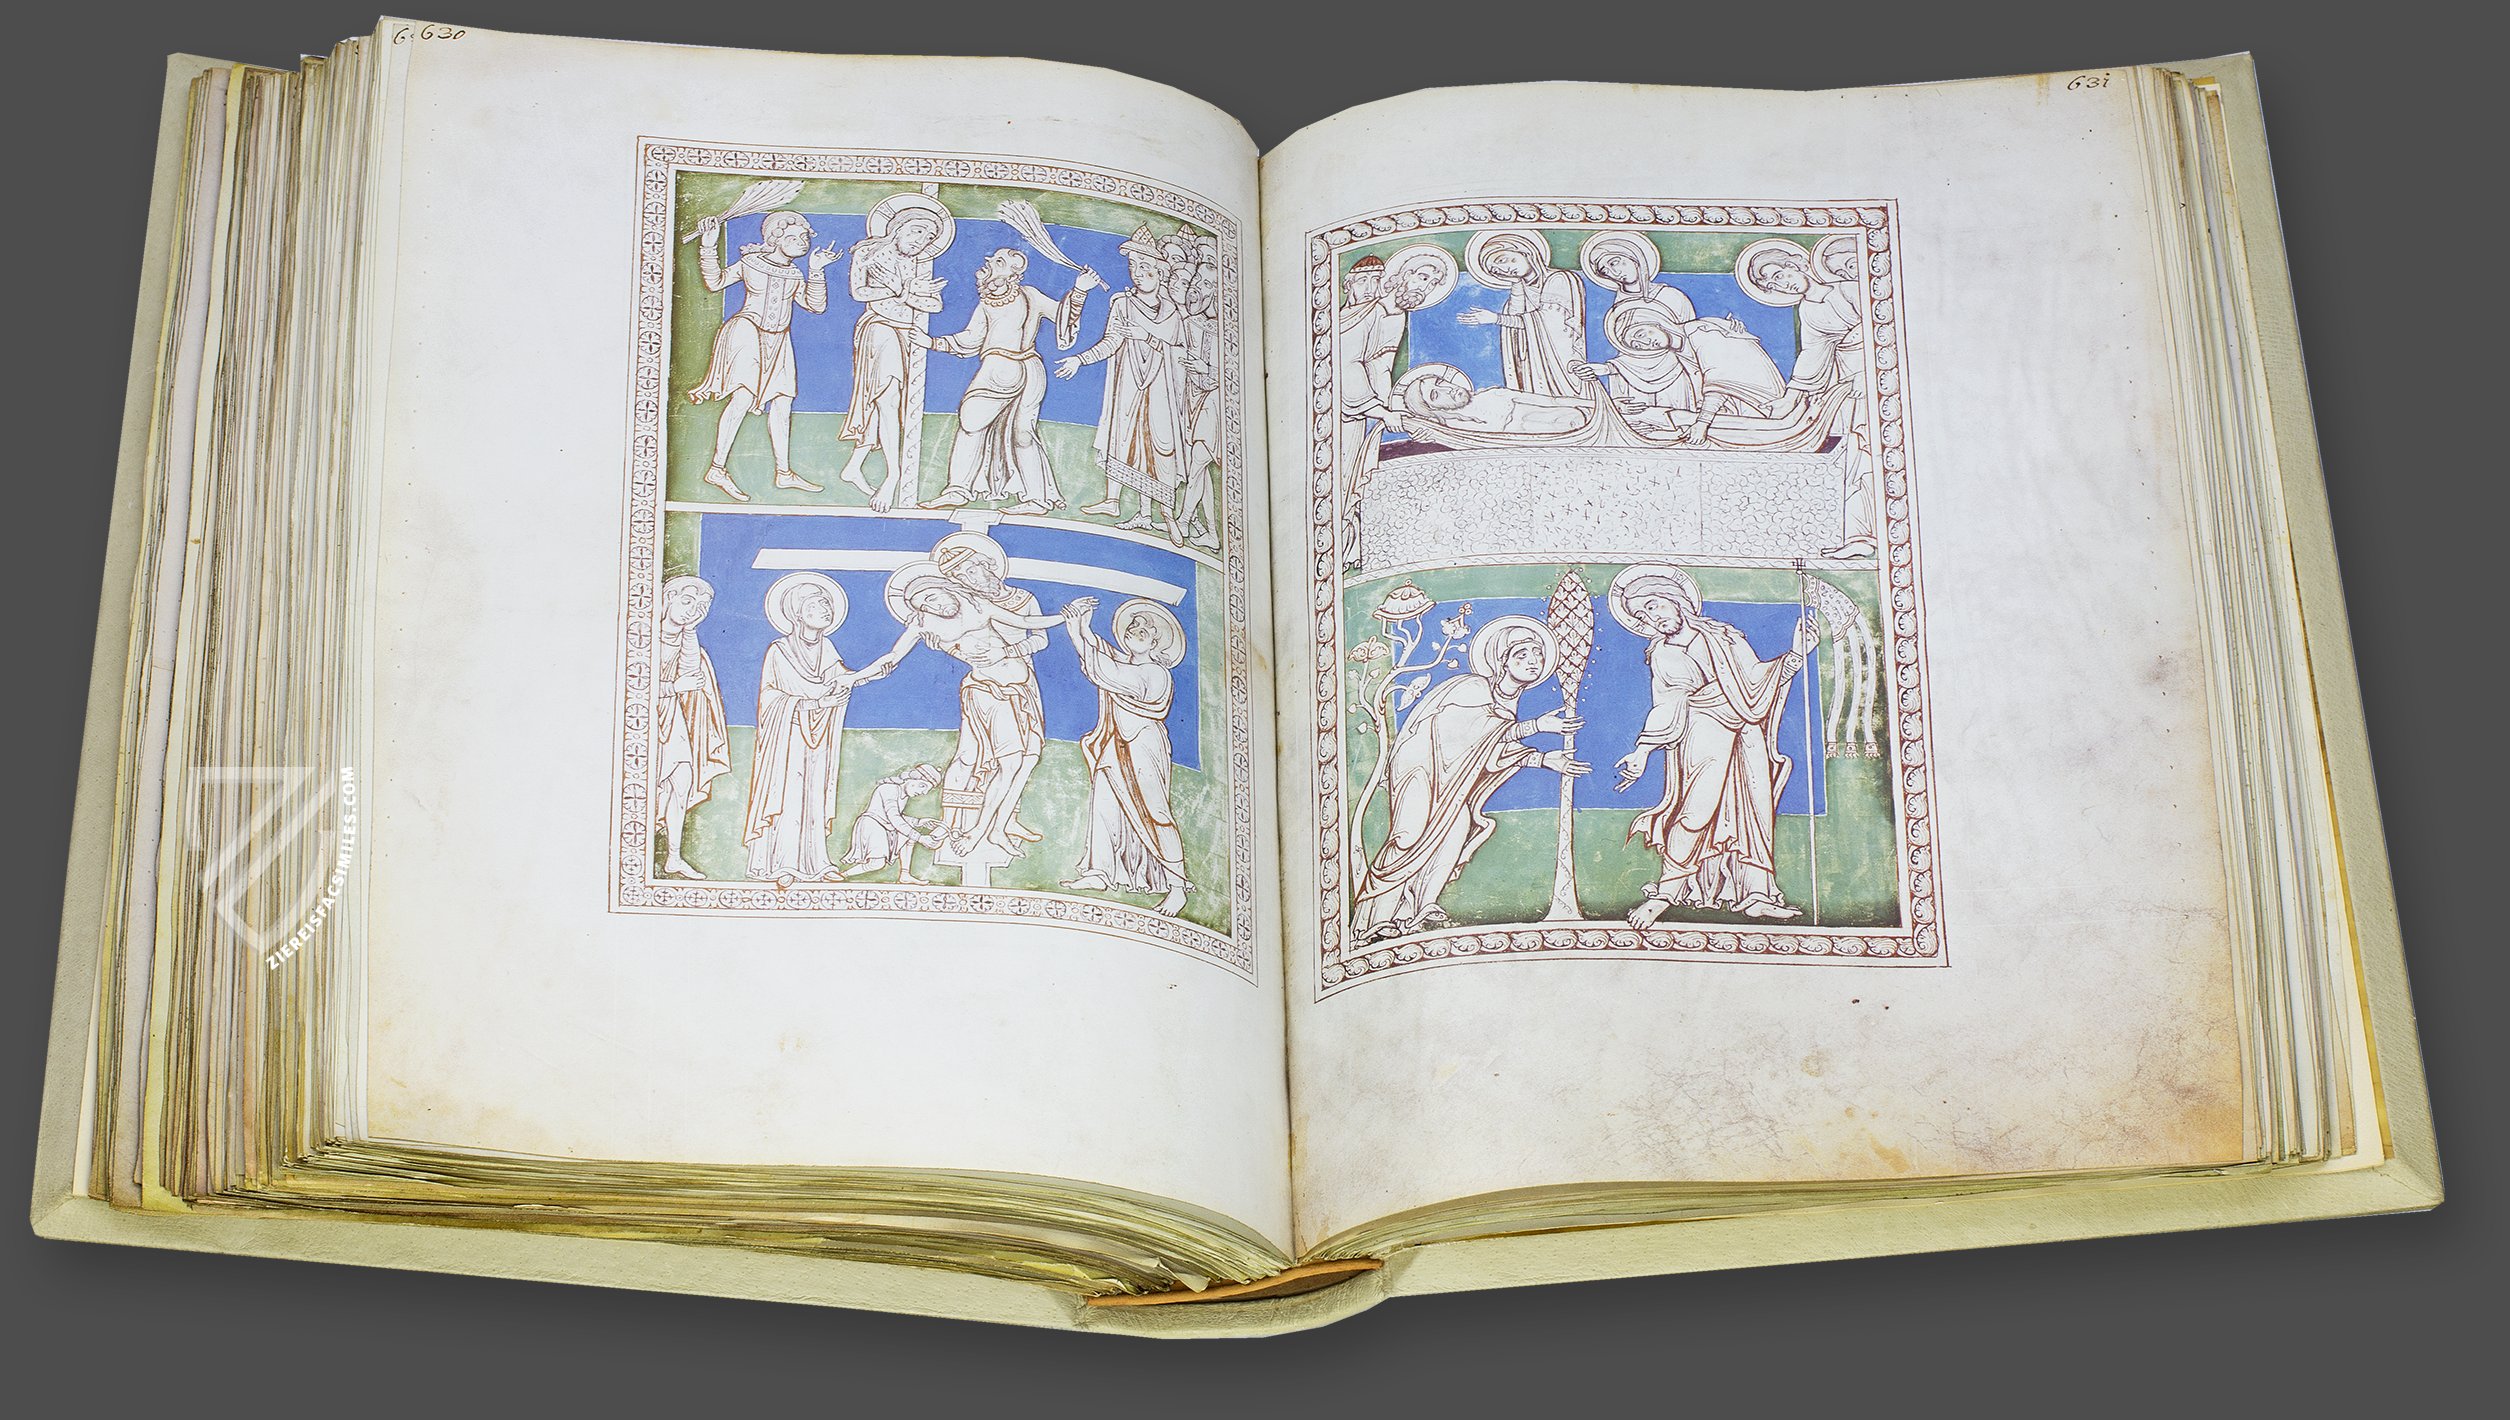 630
631
ZIEREISFACSIMILES.COM